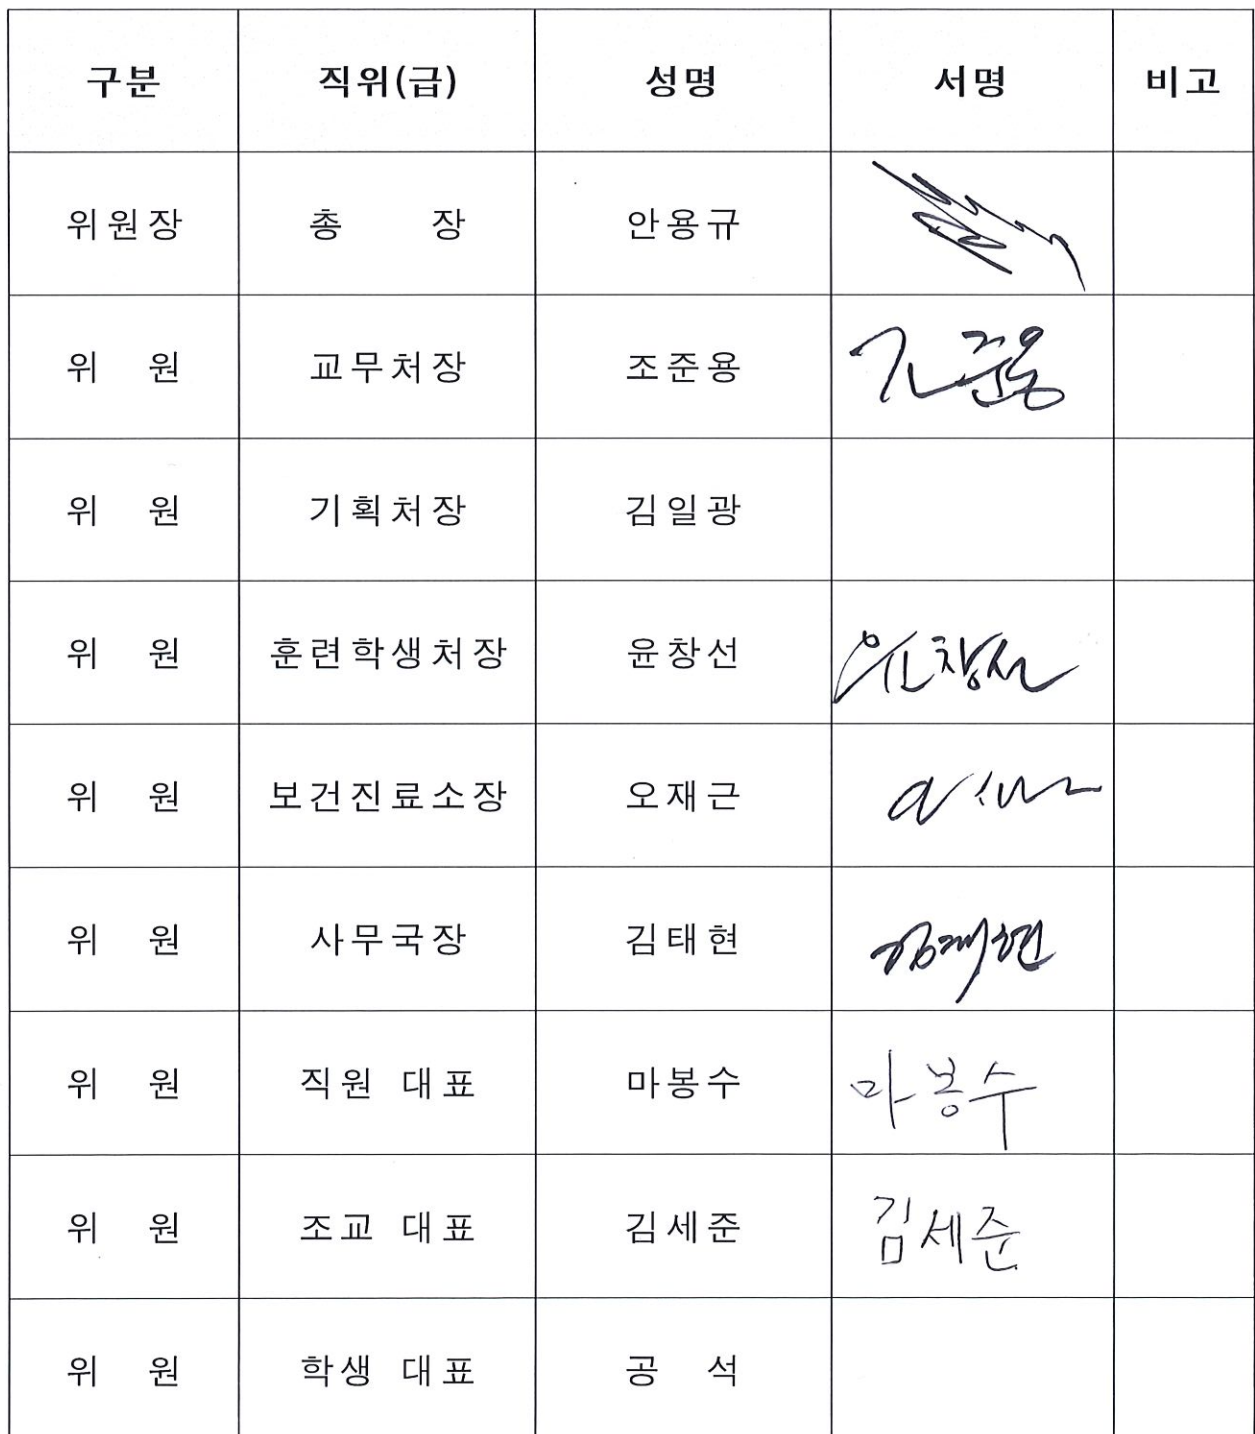 구분 직위(급) 성명 서명 비고
위원장 총 장 안용규
위 원 교무처장 조준용 조준용
위 원 기획처장 김일광
위 원 훈련학생처장 윤창선 윤창선
위 원 보건진료소장 오재근
위 원 사무국장 김태현 김태현
위 원 직원 대표 마봉수 마봉수
위 원 조교 대표 김세준 김세준
위 원 학생 대표 공 석